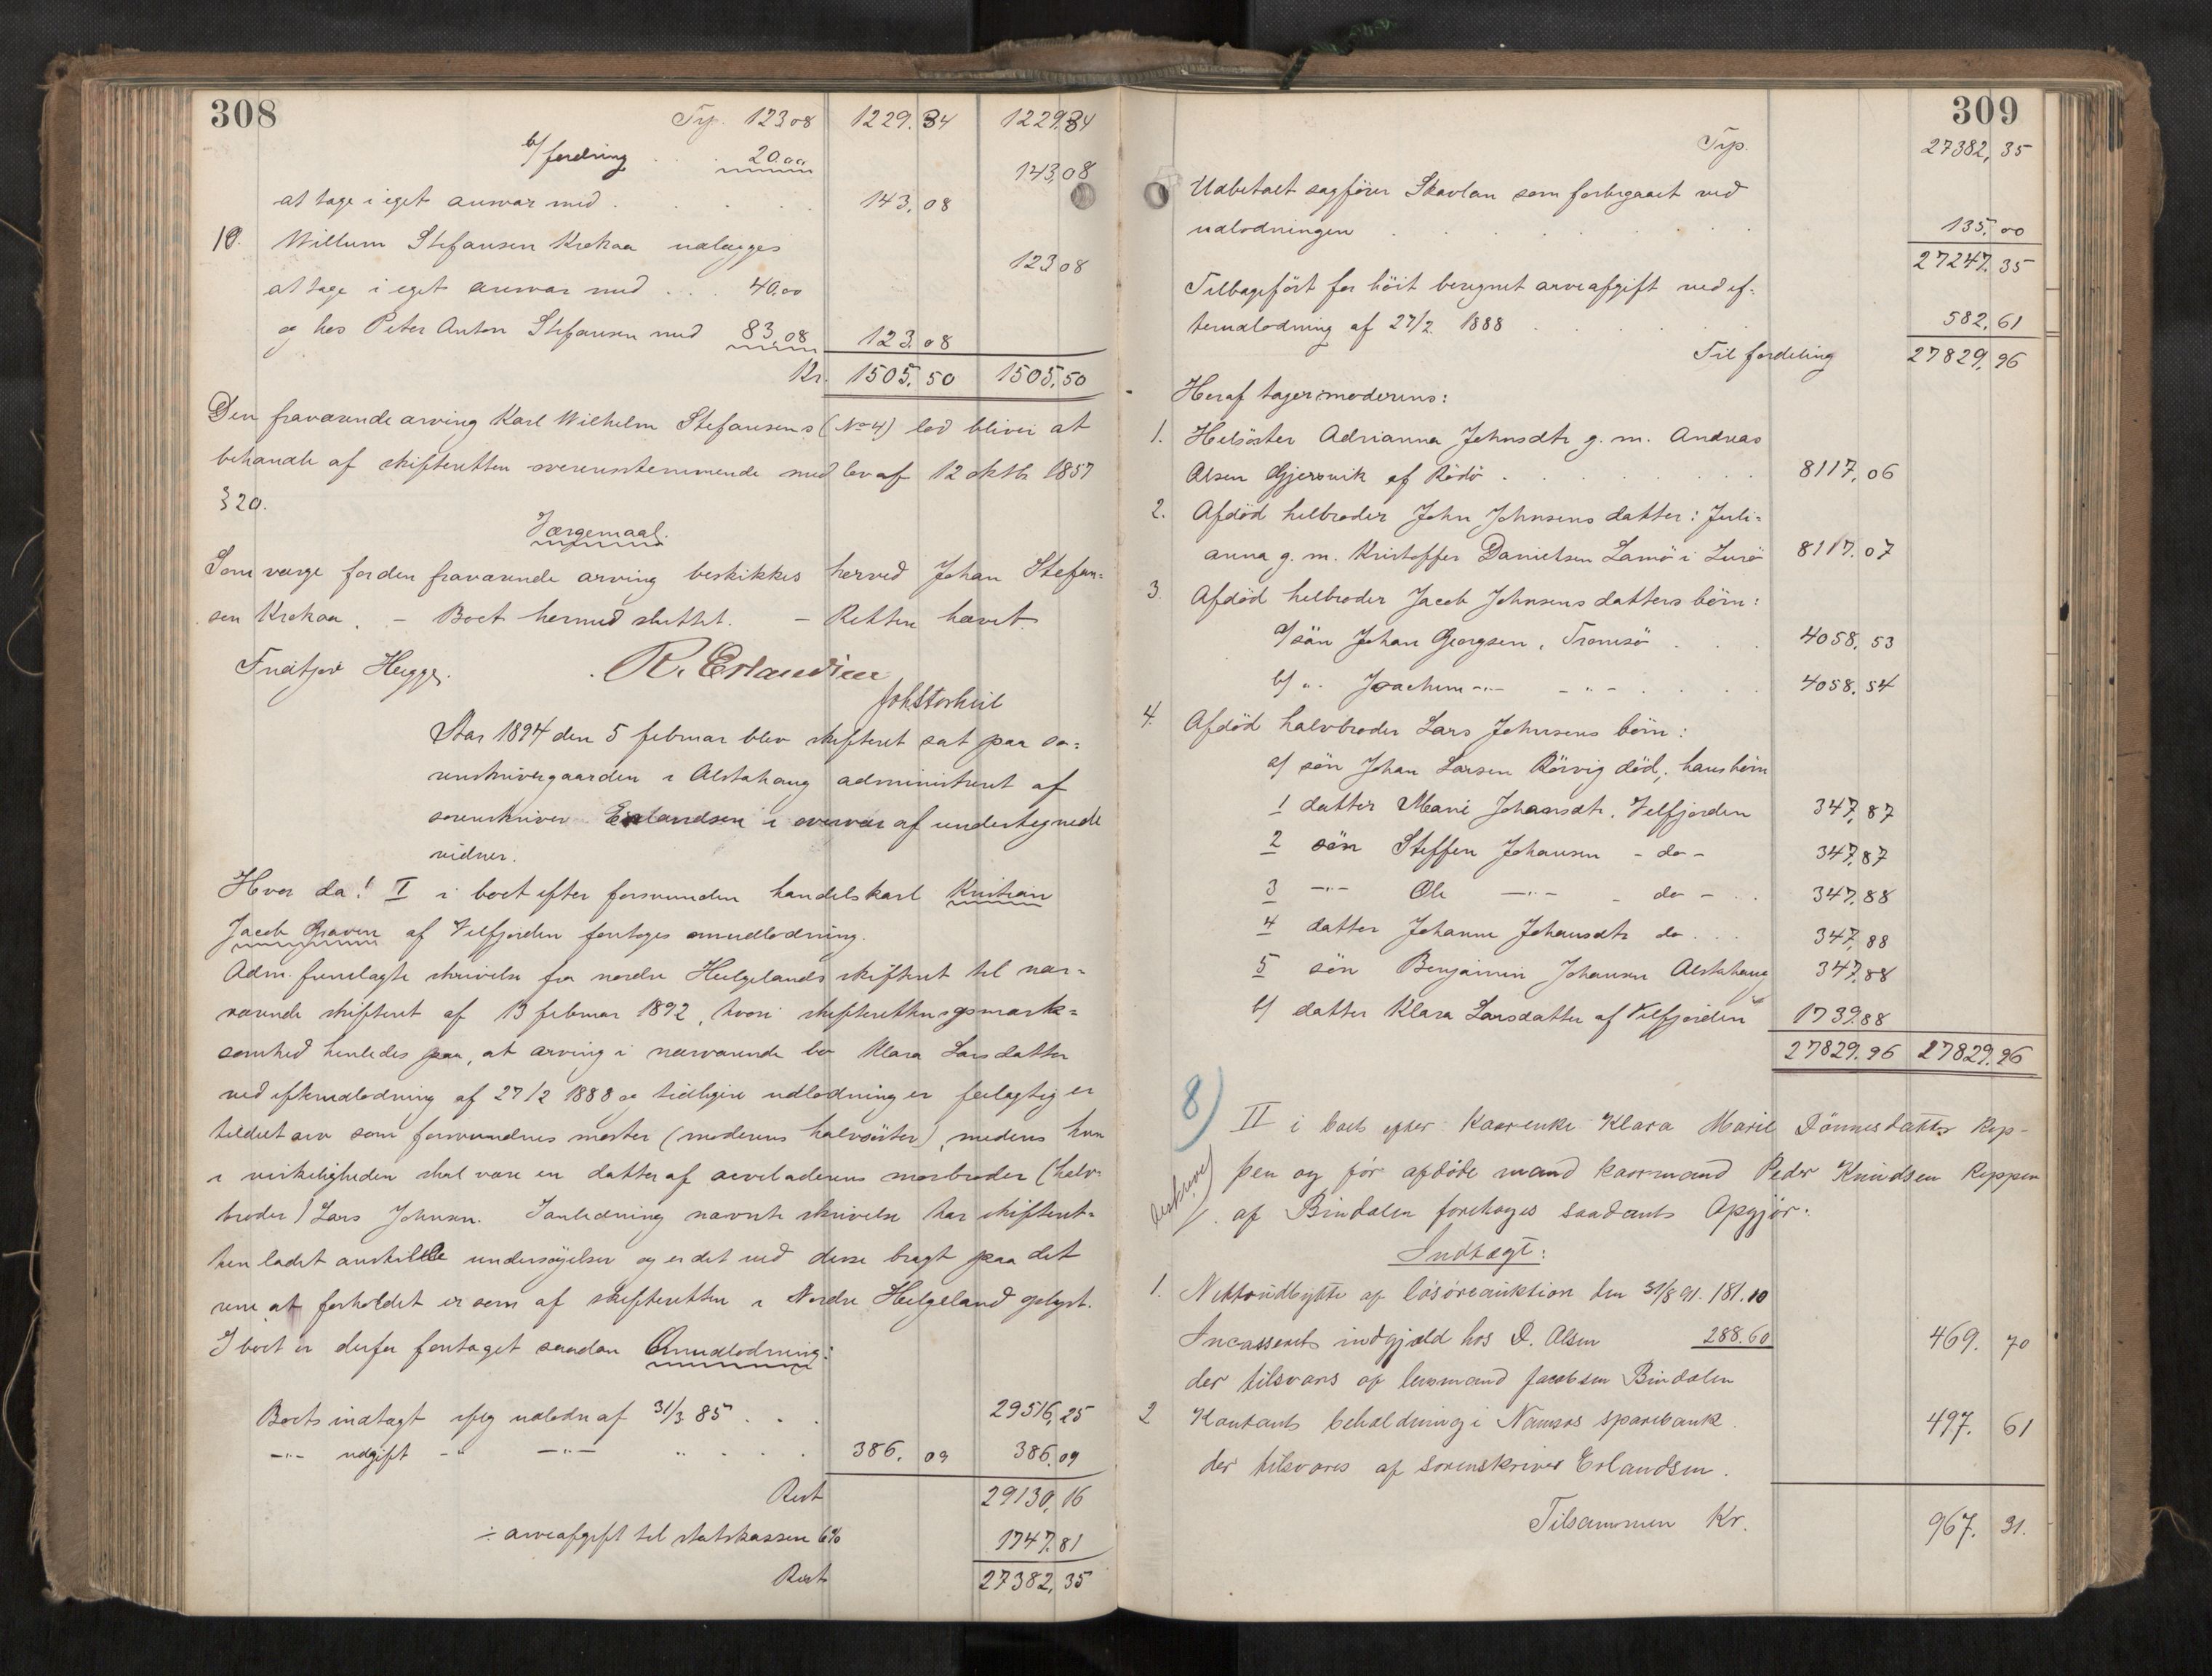 308
Trp. 123 08 1229.84 1229.84
b/ fordring . . 20.00 143,08
at tage i eget ansvar med . . . . . 143,08
10. Willum Stefansen Krokaa udlægges 123 08
at tage i eget ansvar med . . . 40.00
og hos Peter Anton Stefansen med 83,08 123.08
Kr. 1505.50 1505.50
Den fraværende arving Karl Wilhelm Stefansens (No 4) lod bliver at
behandle af skifteretten overensstemmende med lov af 12 oktb. 1857
§ 20.
Værgemaal.
Som værge for den fraværende arving beskikkes herved Johan Stefan=
sen Krokaa. – Boet hermed sluttet. – Retten hævet.
Fridtjov Hegge. R. Erlandsen
Aar 1894 den 5 februar blev skifteret sat paa so=
renskrivergaarden i Alstahaug administreret af
sorenskriver Erlandsen i overvær af undertegnede
vidner.
Hvor da! I i boet efter forsvunden handelskarl Kristian
Jacob Graven af Velfjorden foretoges omudlodning.
Adm. fremlagte skrivelse fra nordre Helgelands skifteret til nær=
værende skifteret af 13 februar 1892, hvori skifterettens opmærk=
somhed henledes paa, at arving i nærværende bo Klara Larsdatter
ved efterudlodning af 27/2 1888 og tidligere udlodninger feilagtig er
tildelt arv som forsvundnes moster (moderens halvsøster), medens hun
i virkeligheden skal være en datter af arveladerens morbroder (halv=
broder) Lars Johnsen. I anledning nævnte skrivelse har skifteret=
ten ladet anstille undersøgelser og er det ved disse bragt paa det
rene at forholdet er som af skifteretten i Nordre Helgeland oplyst.
I boet er derfor foretaget saadan Omudlodning:
Boets indtægt ifølg udlodn af 31/3 85 . . . 29516,25
–"– udgift –"– –"– " . . . . 386.09 386,09
Rest 29130,16
÷ arveafgift til statskassen 6% 1747.81
Rest 27382,35
309
Trp. 27382,35
Udbetalt sagfører Skavlan som forbigaaet ved
udlodningen . . . . . . . 135.00
27247.35
Tilbageført for høit beregnet arveafgift ved ef=
terudlodning af 27/2 1888 . . . . . 582.61
Til fordeling 27829.96
Heraf tager moderens:
1. Helsøster Adrianna Johnsdtr g. m. Andreas
Olsen Gjersvik af Rødø . . . . . . . 8117,06
2. Afdød helbroder John Johnsens datter: Juli=
anna g. m. Kristoffer Danielsen Lamø i Lurø 8117.07
3. Afdød helbroder Jacob Johnsens datters børn:
a/ søn Johan Georgsen, Tromsø . . . 4058.53
b/ " Joachim –"– –"– . . . 4058.54
4. Afdød halvbroder Lars Johnsens børn:
a/ søn Johan Larsen Rørvig død; hans børn
1 datter Marie Johansdtr, Velfjorden 347,87
2 søn Steffen Johansen – do – 347,87
3 –"– Ole –"– – do – . . 347.88
4 datter Johanna Johansdtr do . . . 347,88
5 søn Benjamin Johansen Alstahaug 347.88
b/ datter Klara Larsdatter af Velfjorden 1739.88
27829.96 27829.96
8)
II i boet efter kaarenke Klara Marie Dønnesdatter Rep-
pen og før afdøde mand kaarmand Peder Knudsen Reppen
af Bindalen foretoges saadant Opgjør:
Indtægt:
1. Nettoudbytte af løsøreauktion den 31/8 91. 181.10
Incasseret indgjæld hos D. Olsen 288.60 469. 70
der tilsvares af lensmand Jacobsen Bindalen
2 Kontant beholdning i Namsos sparebank 497. 61
der tilsvares af sorenskriver Erlandsen.
Tilsammen Kr. 967. 31.